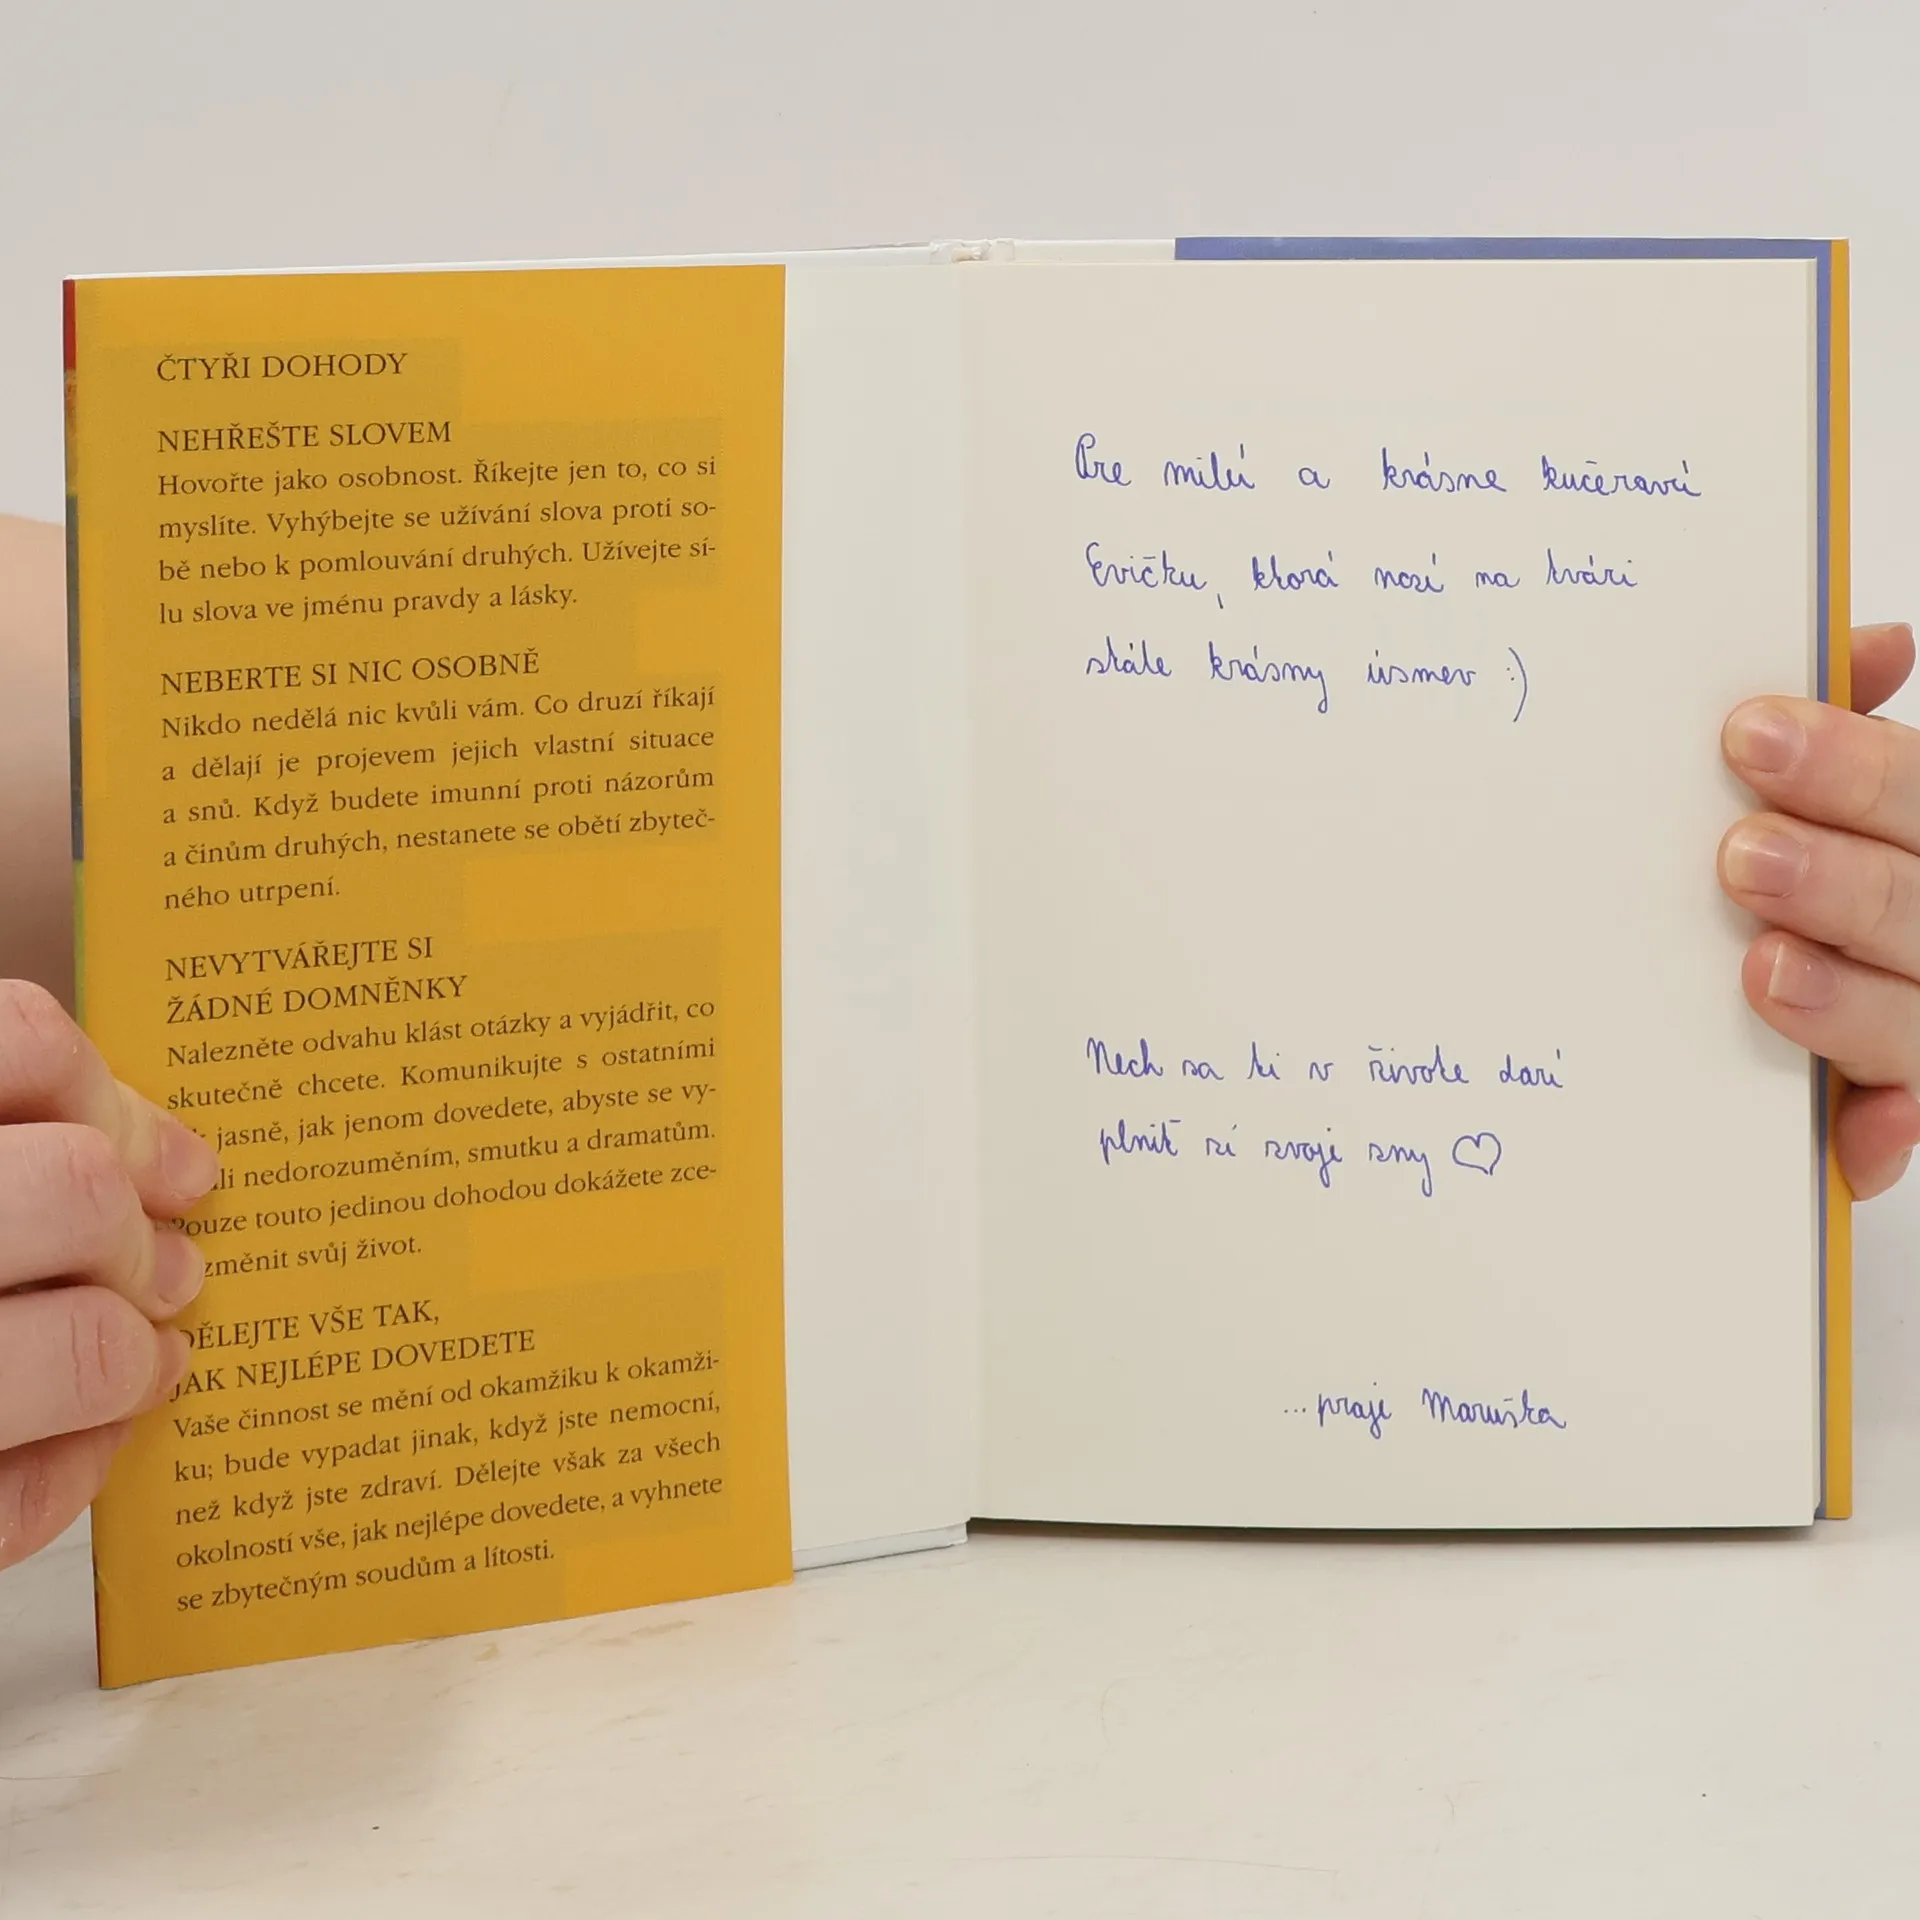 ČTYŘI DOHODY
NEHŘEŠTE SLOVEM
Hovořte jako osobnost. Říkejte jen to, co si
myslíte. Vyhýbejte se užívání slova proti so-
bě nebo k pomlouvání druhých. Užívejte sí-
lu slova ve jménu pravdy a lásky.
NEBERTE SI NIC OSOBNĚ
Nikdo nedělá nic kvůli vám. Co druzí říkají
a dělají je projevem jejich vlastní situace
a snů. Když budete imunní proti názorům
a činům druhých, nestanete se obětí zbyteč-
ného utrpení.
NEVYTVÁŘEJTE SI
ŽÁDNÉ DOMNĚNKY
Nalezněte odvahu klást otázky a vyjádřit, co
skutečně chcete. Komunikujte s ostatními
jasně, jak jenom dovedete, abyste se vy-
li nedorozuměním, smutku a dramatům.
Pouze touto jedinou dohodou dokážete zce-
změnit svůj život.
DĚLEJTE VŠE TAK,
JAK NEJLÉPE DOVEDETE
Vaše činnost se mění od okamžiku k okamži-
ku; bude vypadat jinak, když jste nemocní,
než když jste zdraví. Dělejte však za všech
okolností vše, jak nejlépe dovedete, a vyhnete
se zbytečným soudům a lítosti.
Pre milú a krásne kučeravú
Evičku, ktorá nosí na tvári
stále krásny úsmev :)
Nech sa ti v živote darí
plniť si svoje sny ♡
...praje Maruška